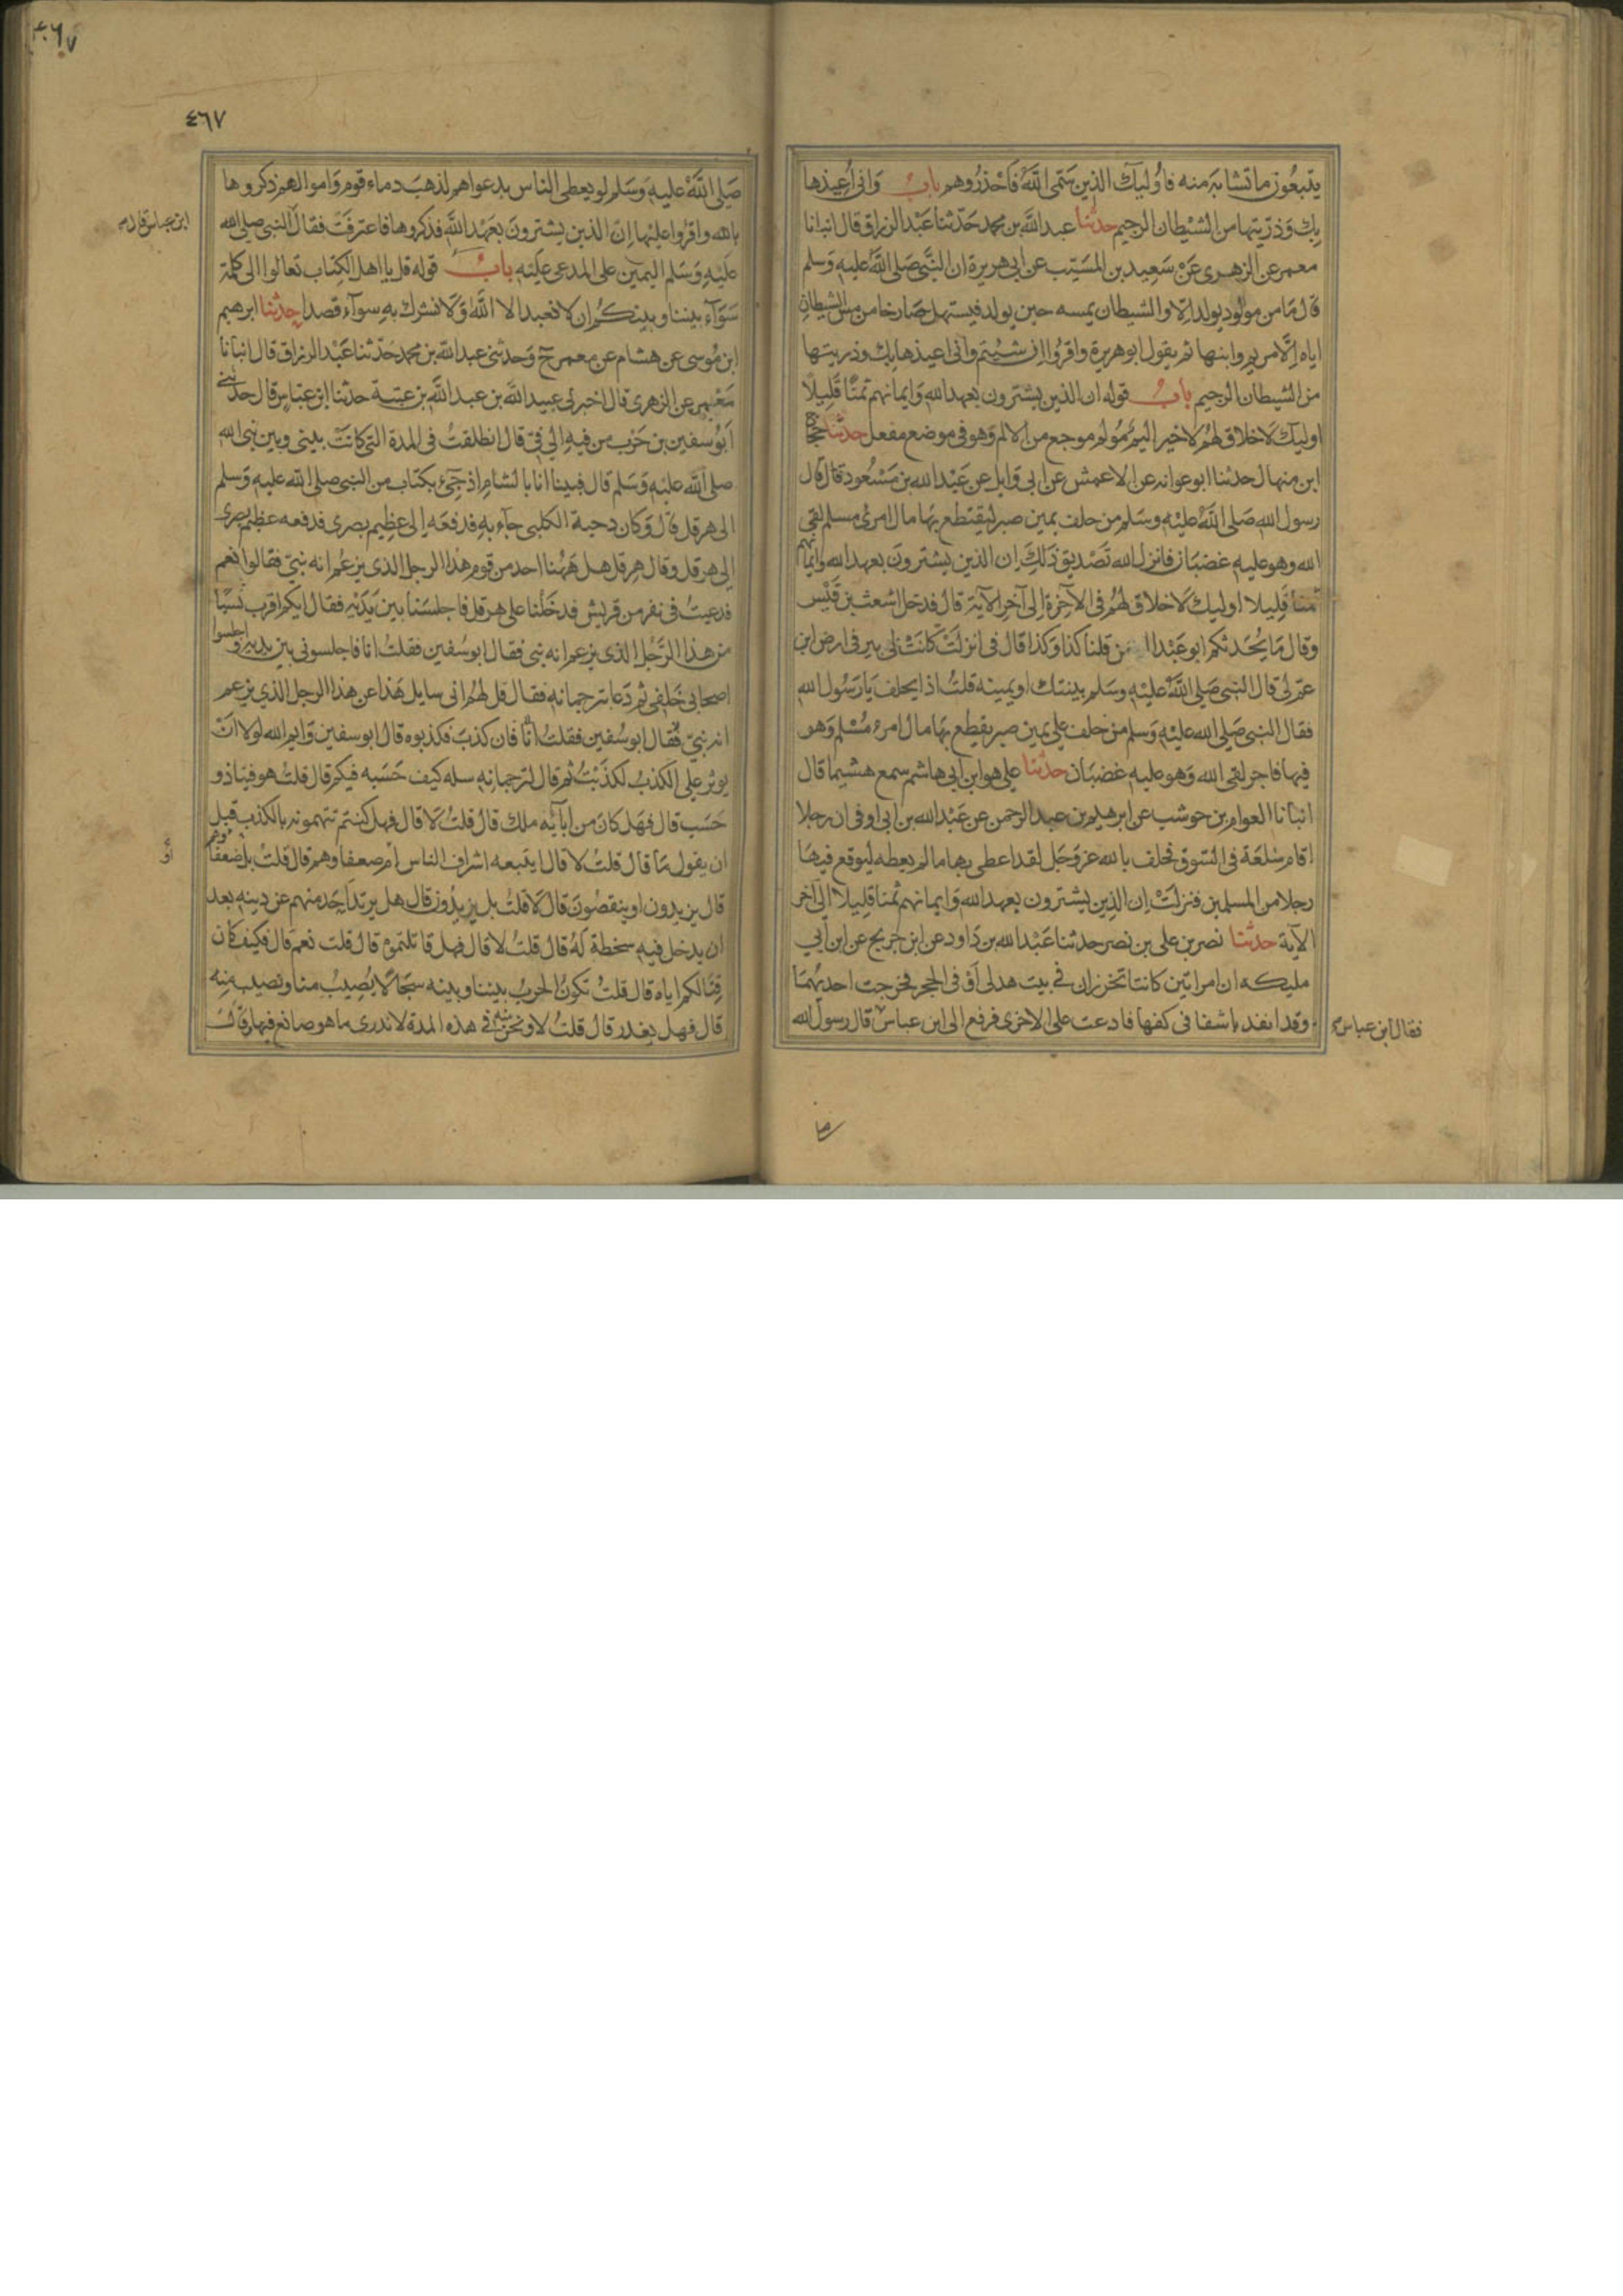 يتبعون ما تشابه منه فاوليك الذين سمى الله فاحذروهم باب واني اعيذها
بك وذريتها من الشيطان الرجيم حدثنا عبد الله بن محمد حدثنا عبد الرزاق قال انبانا
معمر عن الزهري عن سعيد بن المسيب عن ابي هريرة ان النبي صلى الله عليه وسلم
قال ما من مولود يولد الا والشيطان يمسه حين يولد فيستهل صارخا من مس الشيطان
اياه الا مريم وابنها ثم يقول ابو هريرة واقروا ان شيتم واني اعيذها بك وذريتها
من الشيطان الرجيم باب قوله ان الذين يشترون بعهد الله وايمانهم ثمنا قليلا
اوليك لا خلاق لهم لا خير اليم مولم موجع من الالم وهو في موضع مفعل حدثنا حجاج
ابن منهال حدثنا ابو عوانه عن الاعمش عن ابي وايل عن عبد الله بن مسعود قال قال
رسول الله صلى الله عليه وسلم من حلف يمين صبر ليقتطع بها مال امرئ مسلم لقي
الله وهو عليه غضبان فانزل الله تصديق ذلك ان الذين يشترون بعهد الله وايمانهم
ثمنا قليلا اوليك لا خلاق لهم في الآخرة الى آخر الآية قال فدخل اشعث بن قيس
وقال ما يحدثكم ابو عبد الرحمن قلنا كذا وكذا قال في انزلت كانت لي بير في ارض ابن
عم لي قال النبي صلى الله عليه وسلم بينتك او يمينه قلت اذا يحلف يا رسول الله
فقال النبي صلى الله عليه وسلم من حلف على يمين صبر يقطع بها مال امرء مسلم وهو
فيها فاجر لقي الله وهو عليه غضبان حدثنا علي هو ابن ابي هاشم سمع هشيما قال
انبانا العوام بن حوشب عن ابرهيم بن عبد الرحمن عن عبد الله بن ابي اوفى ان رجلا
اقام سلعة في السوق فحلف بالله عز وجل لقد اعطي بها ما لم يعطه ليوقع فيها
رجلا من المسلمين فنزلت ان الذين يشترون بعهد الله وايمانهم ثمنا قليلا الى آخر
الآية حدثنا نصر بن علي بن نصر حدثنا عبد الله بن داود عن ابن جريج عن ابن ابي
مليكه ان امراتين كانتا تخرزان في بيت هدلى او في الحجر فخرجت احديهما
وقد انفذ باشفا في كفها فادعت على الاخرى فرفع الى ابن عباس قال رسول الله
فقال ابن عباس
٤٦٧
٤٦٧
صلى الله عليه وسلم لو يعطى الناس بدعواهم لذهب دماء قوم واموالهم ذكروها
بالله واقروا عليها ان الذين يشترون بعهد الله فذكروها فاعترفت فقال النبي صلى الله
ابن عباس قال
عليه وسلم اليمين على المدعى عليه باب قوله قل يا اهل الكتاب تعالوا الى كلمة
سواء بيننا وبينكم ان لا نعبد الا الله ولا نشرك به سواء قصدا حدثنا ابرهيم
ابن موسى عن هشام عن معمر ح وحدثني عبد الله بن محمد حدثنا عبد الرزاق قال انبانا
معمر عن الزهري قال اخبرني عبيد الله بن عبد الله بن عتبة حدثنا ابن عباس قال حدثني
ابو سفين بن حرب من فيه الى في قال انطلقت في المدة التي كانت بيني وبين نبي الله
صلى الله عليه وسلم قال فبينا انا بالشام اذ جيء بكتاب من النبي صلى الله عليه وسلم
الى هرقل قال وكان دحية الكلبي جاء به فدفعه الى عظيم بصرى فدفعه عظيم بصرى
الى هرقل وقال هرقل هل ههنا احد من قوم هذا الرجل الذي يزعم انه نبي فقالوا نعم
فدعيت في نفر من قريش فدخلنا على هرقل فاجلسنا بين يديه فقال ايكم اقرب نسبا
من هذا الرجل الذي يزعم انه نبي فقال ابو سفين فقلت انا فاجلسوني بين يديه واجلسوا
اصحابي خلفي ثم دعا بترجمانه فقال قل لهم اني سايل هذا عن هذا الرجل الذي يزعم
انه نبي فقال ابو سفين فقلت انا فان كذب فكذبوه قال ابو سفين وايم الله لولا ان
يوثر علي الكذب لكذبت ثم قال لترجمانه سله كيف حسبه فيكم قال قلت هو فينا ذو
حسب قال فهل كان من آبائه ملك قال قلت لا قال فهل كنتم تتهمونه بالكذب قبل
ان يقول ما قال قلت لا قال ايتبعه اشراف الناس ام ضعفاوهم قال قلت بل ضعفاوهم
قال يزيدون او ينقصون قال لا قلت بل يزيدون قال هل يرتد احد منهم عن دينه بعد
ان يدخل فيه سخطة له قال قلت لا قال فهل قاتلتموه قال قلت نعم قال فكيف كان
قتالكم اياه قال قلت تكون الحرب بيننا وبينه سجالا يصيب منا ونصيب منه
قال فهل يغدر قال قلت لا ونحن منه في هذه المدة لا ندري ما هو صانع فيها قال